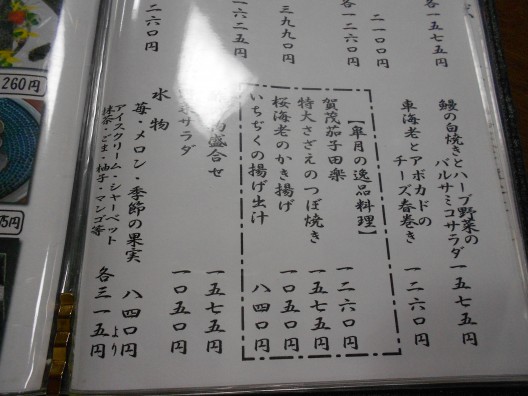 各一五七五円
二一〇〇円
各一二六〇円
三九九〇円
一六二五円
二六〇円
鰻の白焼きとハーブ野菜の
バルサミコサラダ 一五七五円
車海老とアボカドの
チーズ春巻き 一二六〇円
【皐月の逸品料理】
賀茂茄子田楽 一二六〇円
特大さざえのつぼ焼き 一五七五円
桜海老のかき揚げ 一〇五〇円
いちぢくの揚げ出汁 八四〇円
盛合せ 一五七五円
サラダ 一〇五〇円
水物
苺・メロン・季節の果実 八四〇円より
アイスクリーム・シャーベット 各三一五円
抹茶・ゴマ・柚子・マンゴ等
260円